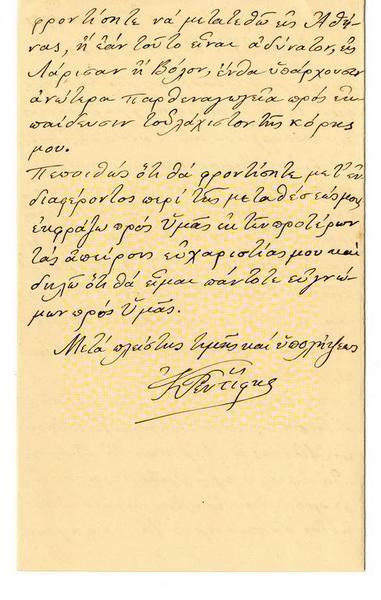 φροντίσητε νὰ μετατεθῶ εἰς Ἀθή-
νας, ἢ ἐὰν τοῦτο εἶναι ἀδύνατον, εἰς
Λάρισαν ἢ Βόλον, ἔνθα ὑπάρχουσιν
ἀνώτερα παρθεναγωγεῖα πρὸς ἐκ-
παίδευσιν τοὐλάχιστον τῆς κόρης
μου.
Πεποιθὼς ὅτι θὰ φροντίσητε μετ' ἐν-
διαφέροντος περὶ τῆς μεταθέσεώς μου
ἐκφράζω πρὸς ὑμᾶς ἐκ τῶν προτέρων
τὰς ἀπείρους εὐχαριστίας μου καὶ
δηλῶ ὅτι θὰ εἶμαι πάντοτε εὐγνώ-
μων πρὸς ὑμᾶς.
Μετὰ πλείστης τιμῆς καὶ ὑπολήψεως